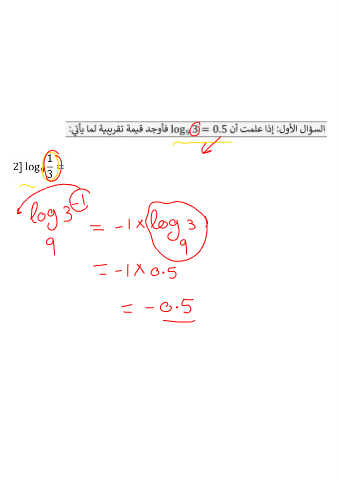 السؤال الأول: إذا علمت أن log₉ 3 = 0.5 فأوجد قيمة تقريبية لما يأتي:
2] log₉ 1/3 =
log₉ 3⁻¹ = -1 × log₉ 3
= -1 × 0.5
= - 0.5